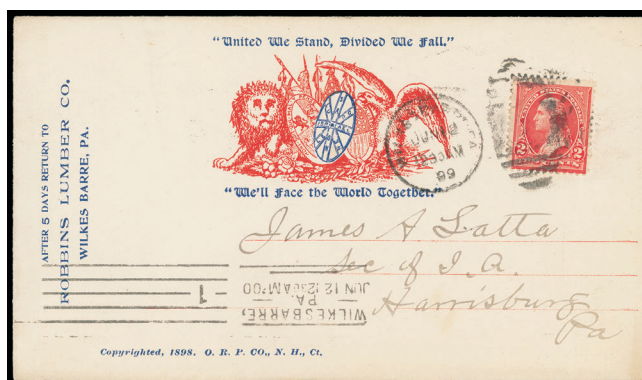 "United We Stand, Divided We Fall."
"We'll Face the World Together."
AFTER 5 DAYS RETURN TO
ROBBINS LUMBER CO.
WILKES BARRE, PA.
JUN 12
12 30 AM
99
2 2
CENTS
James A Latta
Sec of I. A.
Harrisburg
Pa
WILKESBARRE,
PA.
JUN 12 1230AM '00
1
Copyrighted, 1898. O. R. P. CO., N. H., Ct.